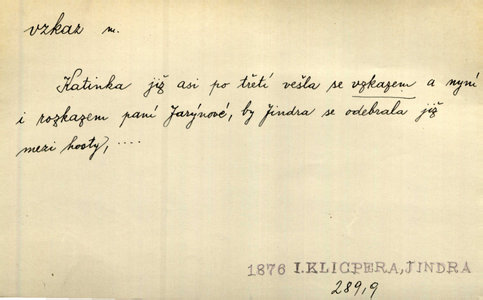 vzkaz m.
Katinka již asi po třetí vešla se vzkazem a nyní
i rozkazem paní Jarýnové, by Jindra se odebrala již
mezi hosty, ....
1876 I.KLICPERA, JINDRA
289,9